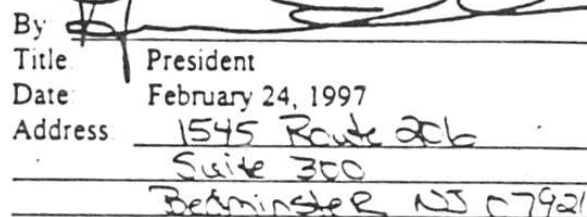 By
Title President
Date February 24, 1997
Address 1545 Route 206
Suite 300
Bedminster NJ 07921